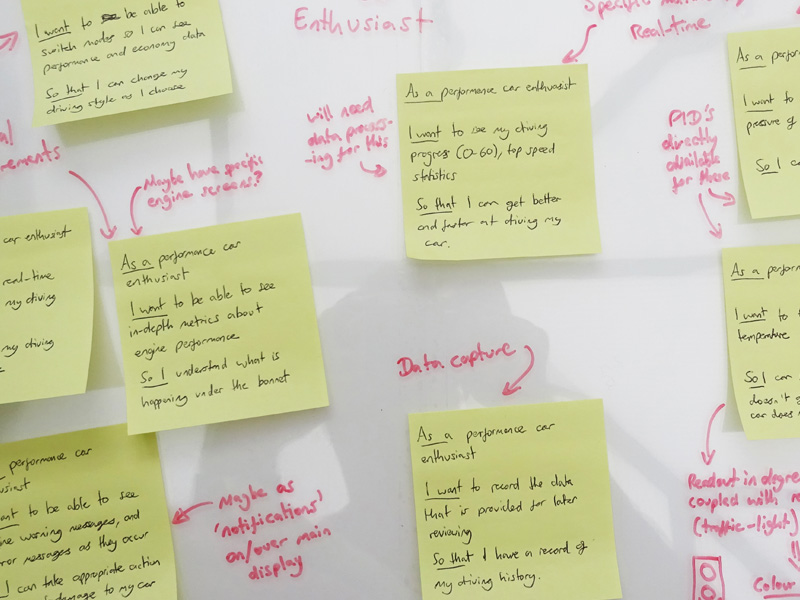 I want to be able to
switch modes so I can see
performance and economy data
So that I can change my
driving style as I choose
Enthusiast
Specific
Real-time
will need
data process-
-ing for this
As a performance car enthusiast
I want to see my driving
progress (0-60), top speed
statistics
So that I can get better
and faster at driving my
car.
PID's
directly
available
for these
As a perfor
I want to
pressure of
So I
Maybe have specific
engine screens?
car enthusiast
real-time
my driving
my driving
As a performance car
enthusiast
I want to be able to see
in-depth metrics about
engine performance
So I understand what is
happening under the bonnet
As a perform
I want to
temperature
So I can
doesn't
car does
Data capture
As a performance car
enthusiast
I want to record the data
that is provided for later
reviewing
So that I have a record of
my driving history.
performance car
to be able to see
warning messages, and
messages as they occur
I can take appropriate action
damage to my car
Maybe as
'notifications'
on/over main
display
Readout in degre
coupled with
(traffic-light)
Colour